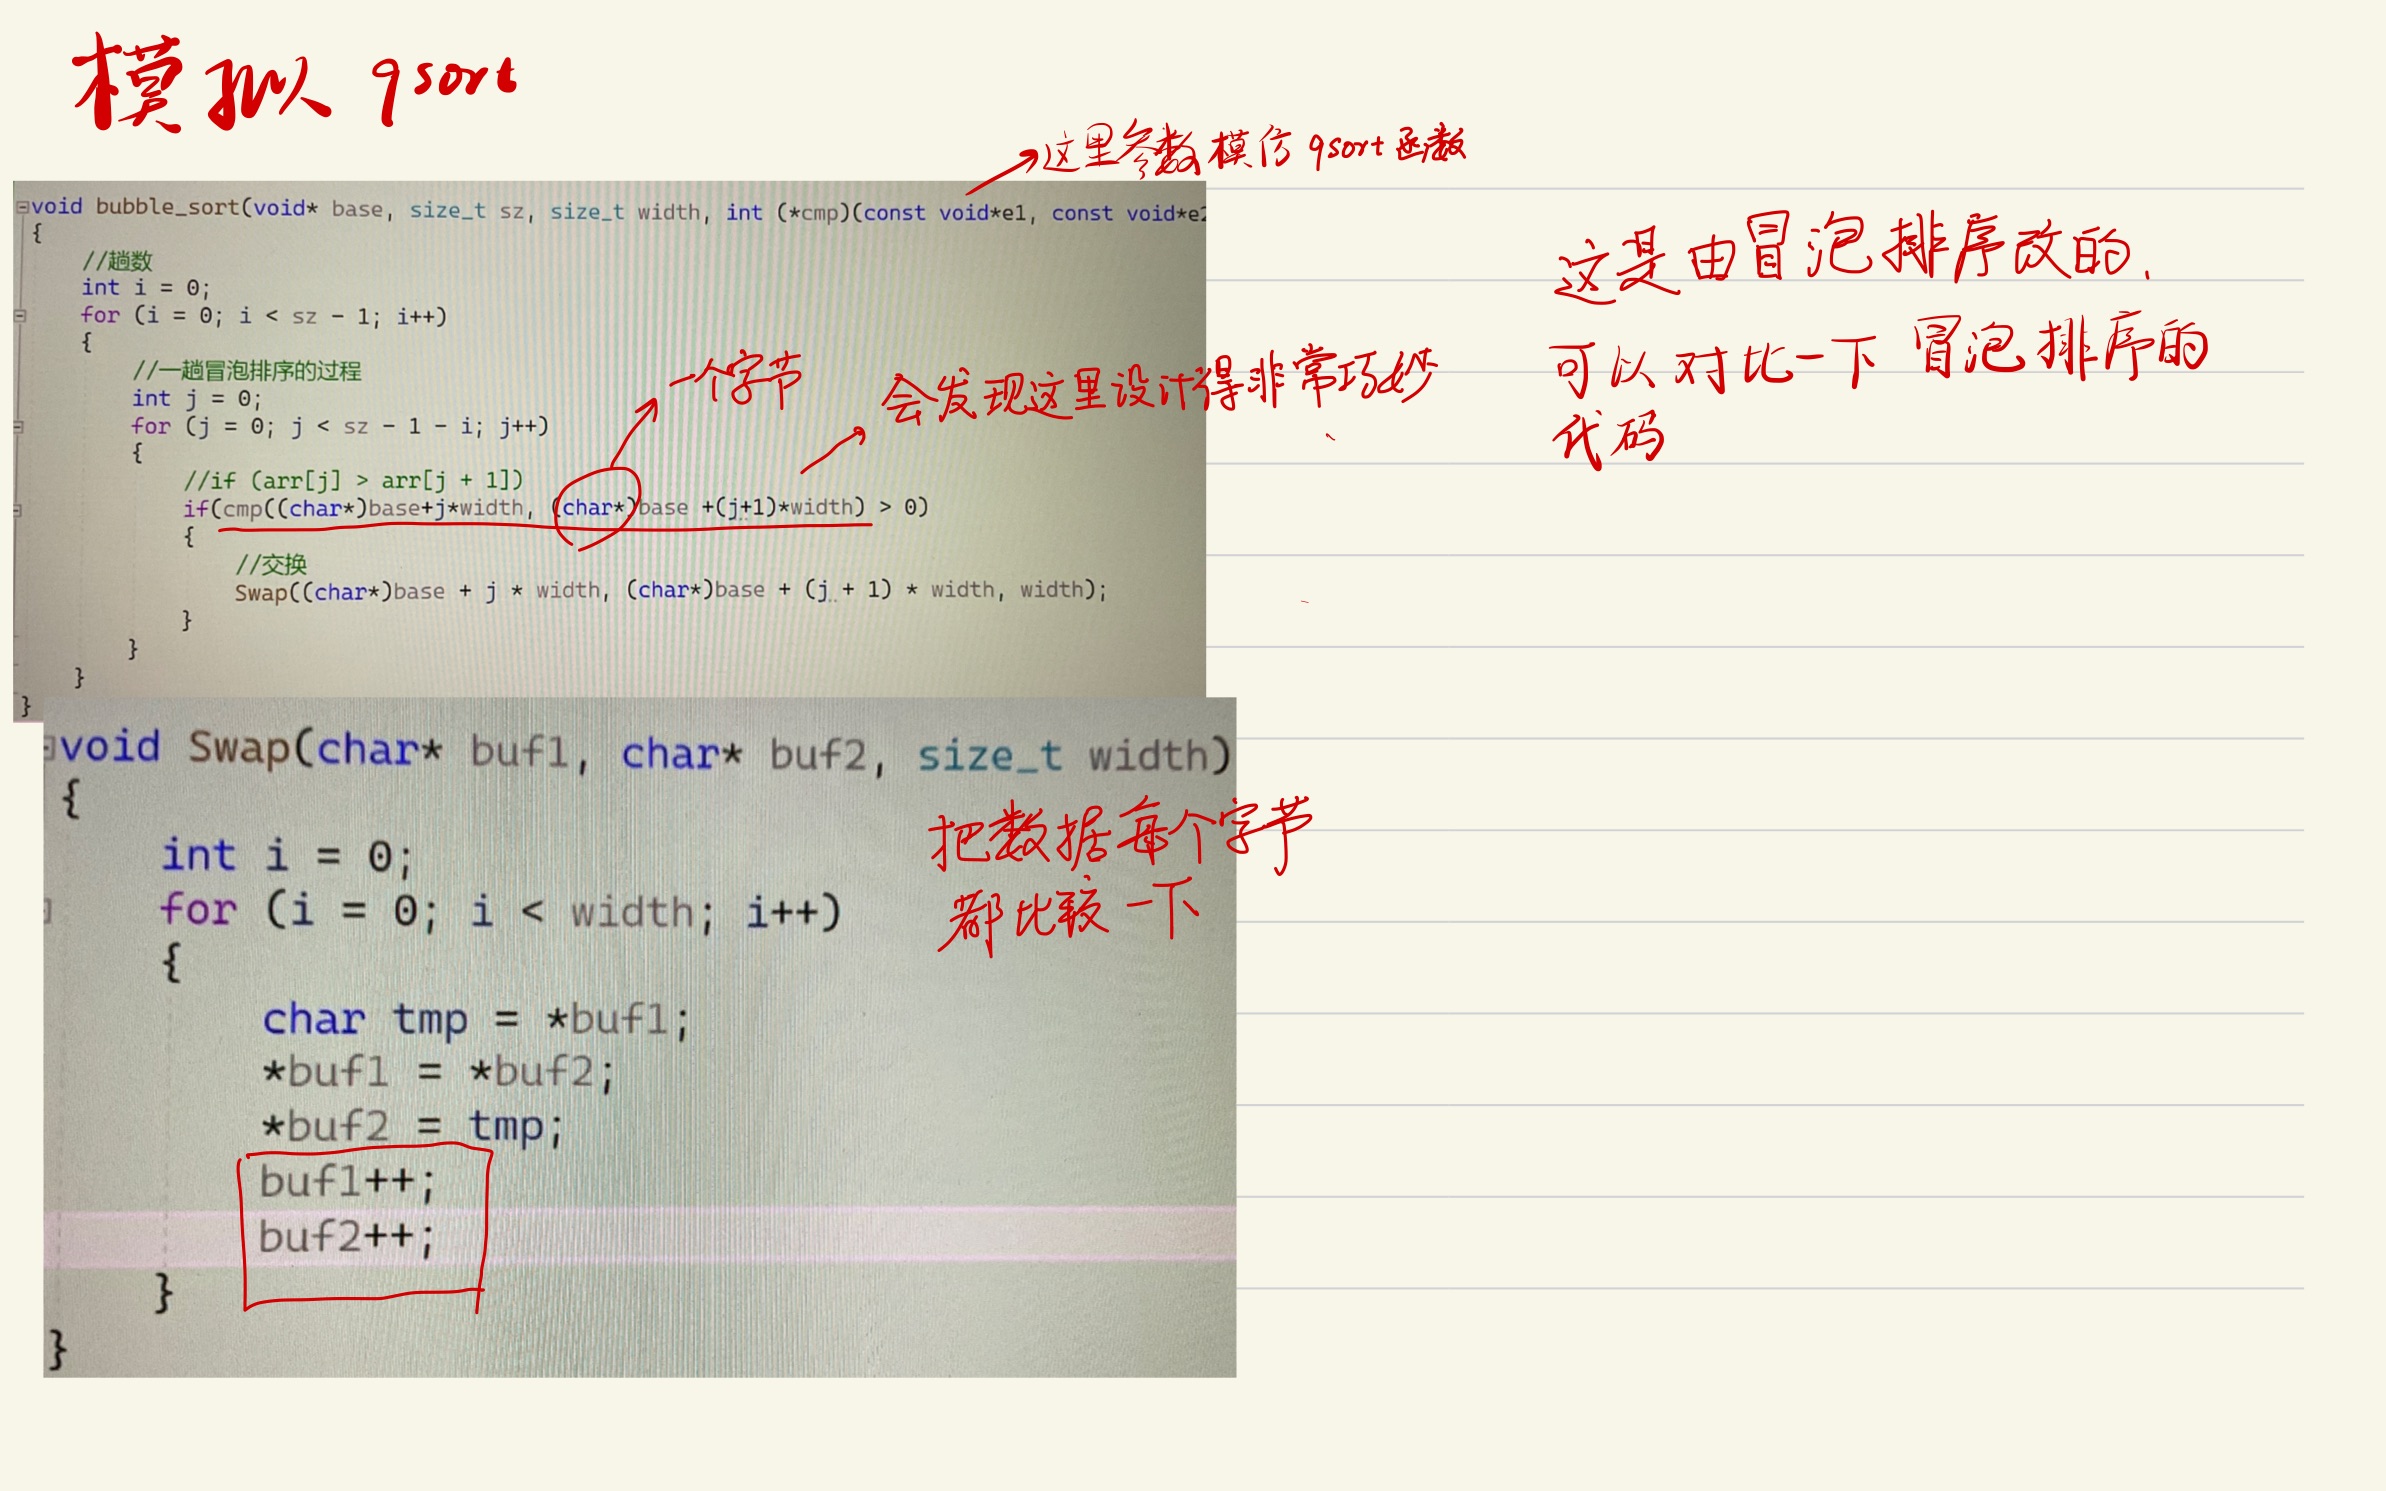 模拟 qsort
这里参数模仿 qsort 函数
void bubble_sort(void* base, size_t sz, size_t width, int (*cmp)(const void*e1, const void*e2
{
//趟数
int i = 0;
for (i = 0; i < sz - 1; i++)
{
//一趟冒泡排序的过程
int j = 0;
for (j = 0; j < sz - 1 - i; j++)
{
//if (arr[j] > arr[j + 1])
if(cmp((char*)base+j*width, (char*)base +(j+1)*width) > 0)
{
//交换
Swap((char*)base + j * width, (char*)base + (j + 1) * width, width);
}
}
}
}
一个字节
会发现这里设计得非常巧妙
这是由冒泡排序改的.
可以对比一下冒泡排序的
代码
void Swap(char* buf1, char* buf2, size_t width)
{
int i = 0;
for (i = 0; i < width; i++)
{
char tmp = *buf1;
*buf1 = *buf2;
*buf2 = tmp;
buf1++;
buf2++;
}
}
把数据每个字节
都比较一下